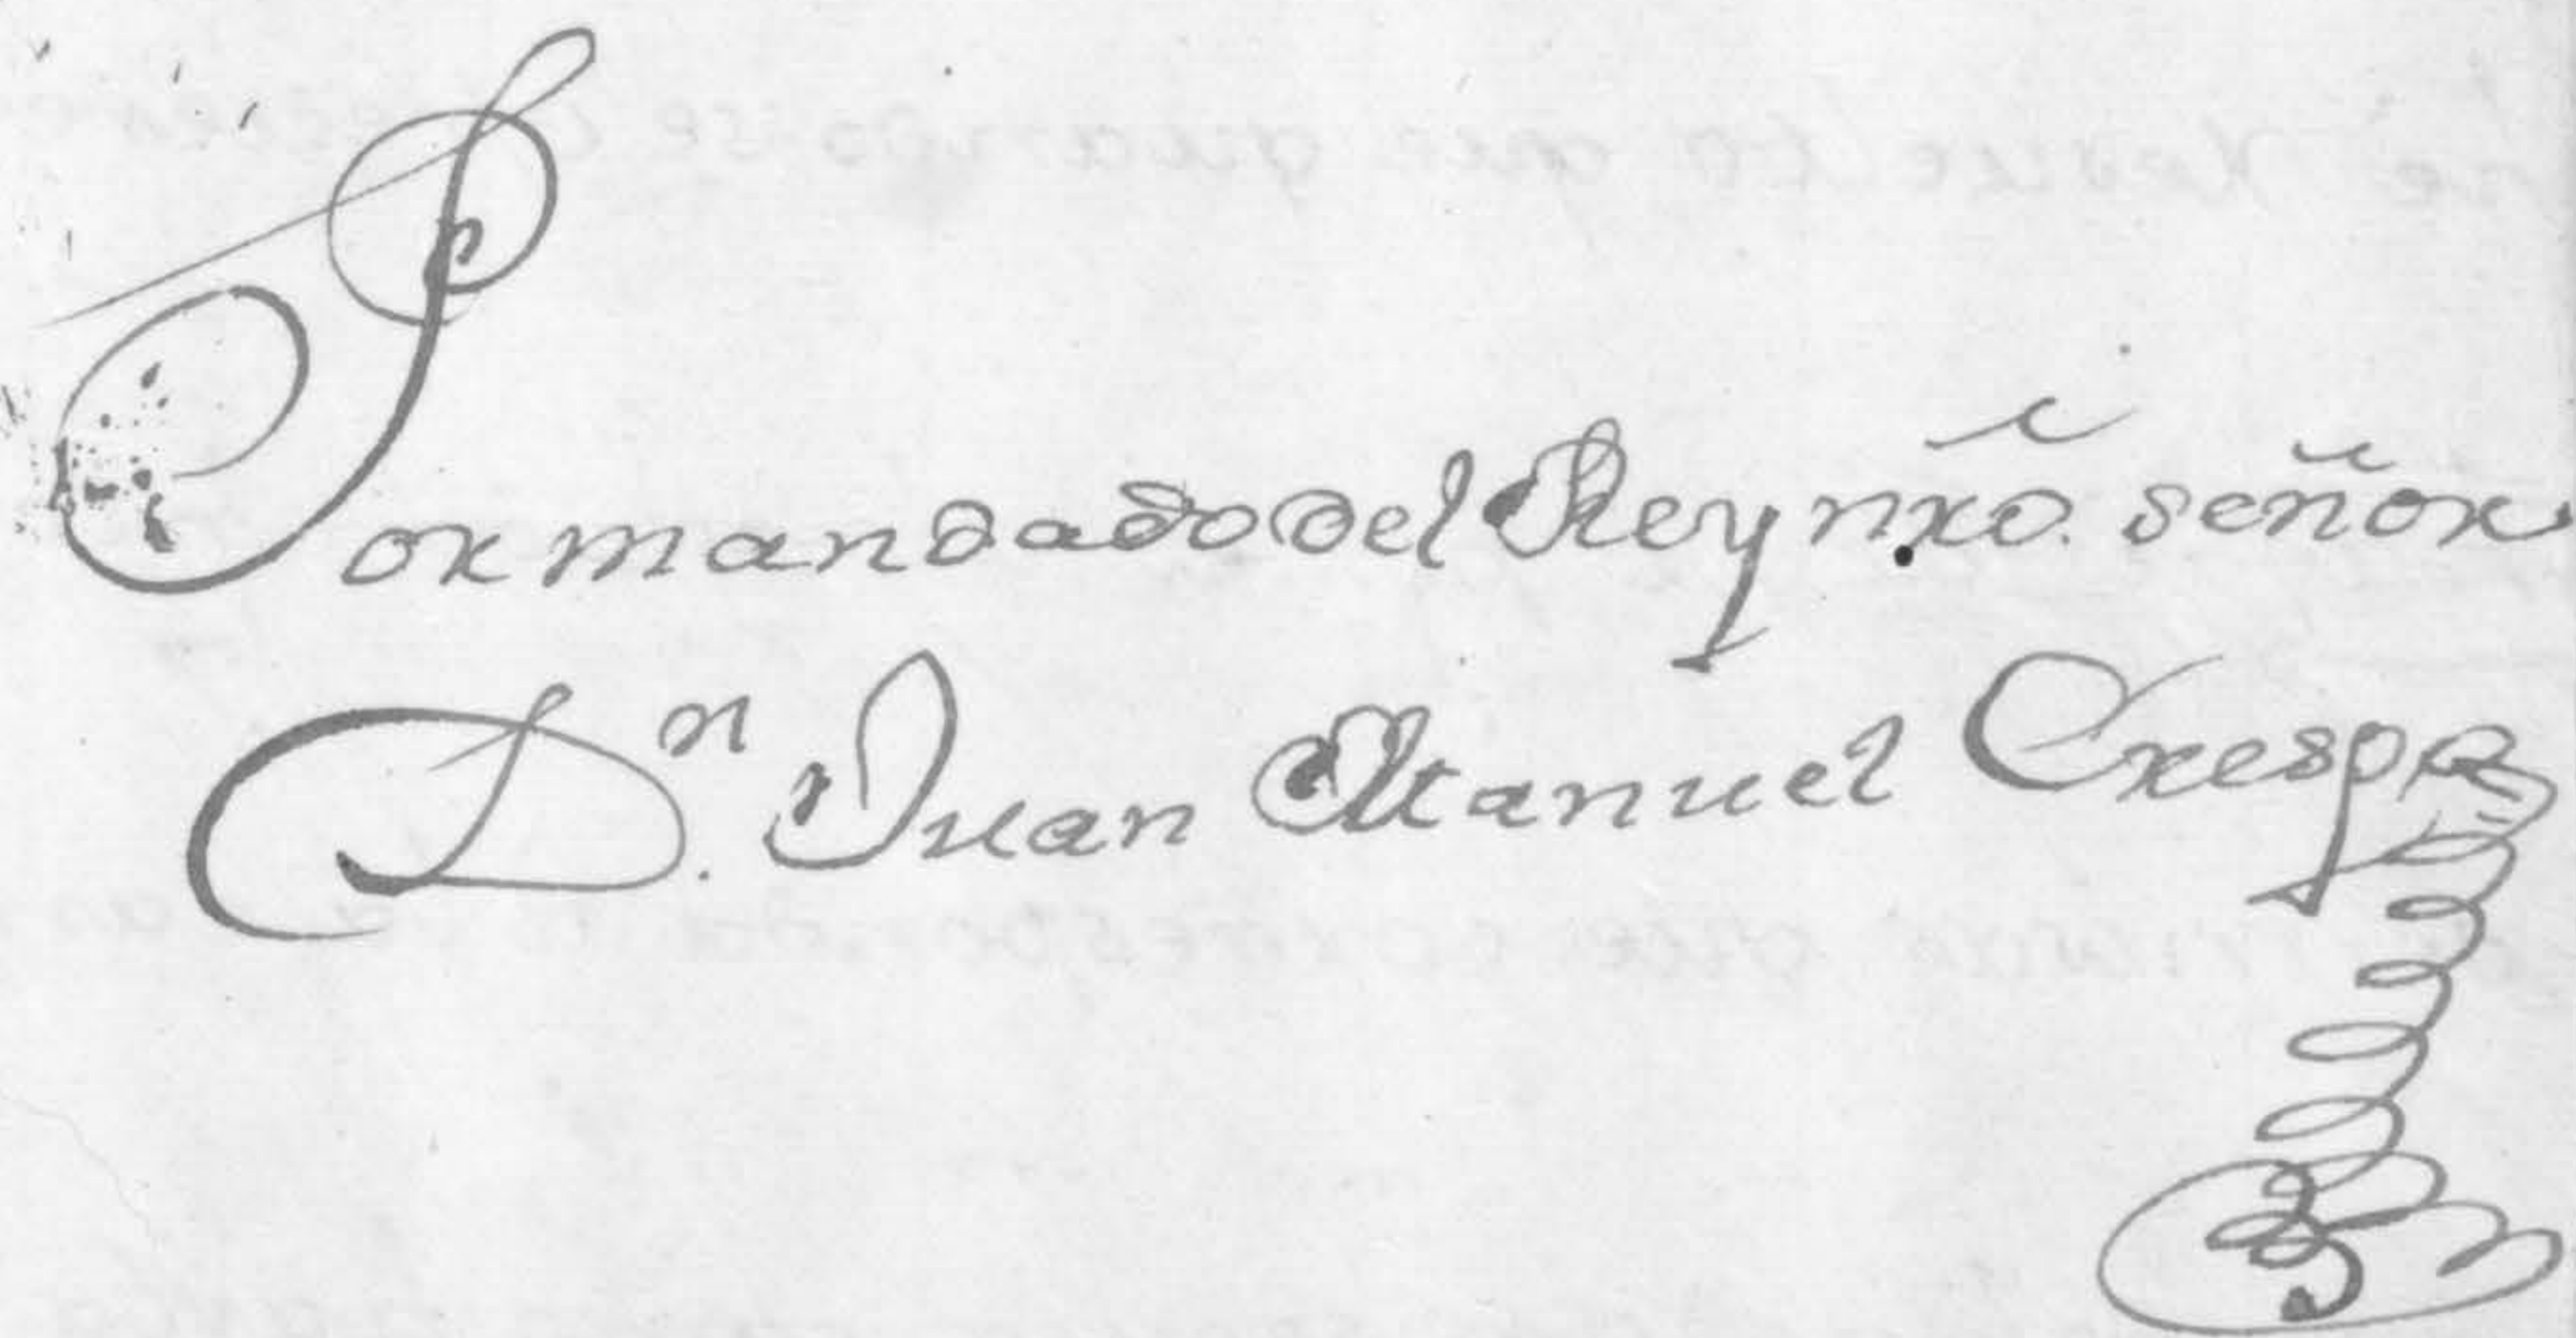 Por mandado del Rey nr̃o. señor
D.n Juan Manuel Crespo